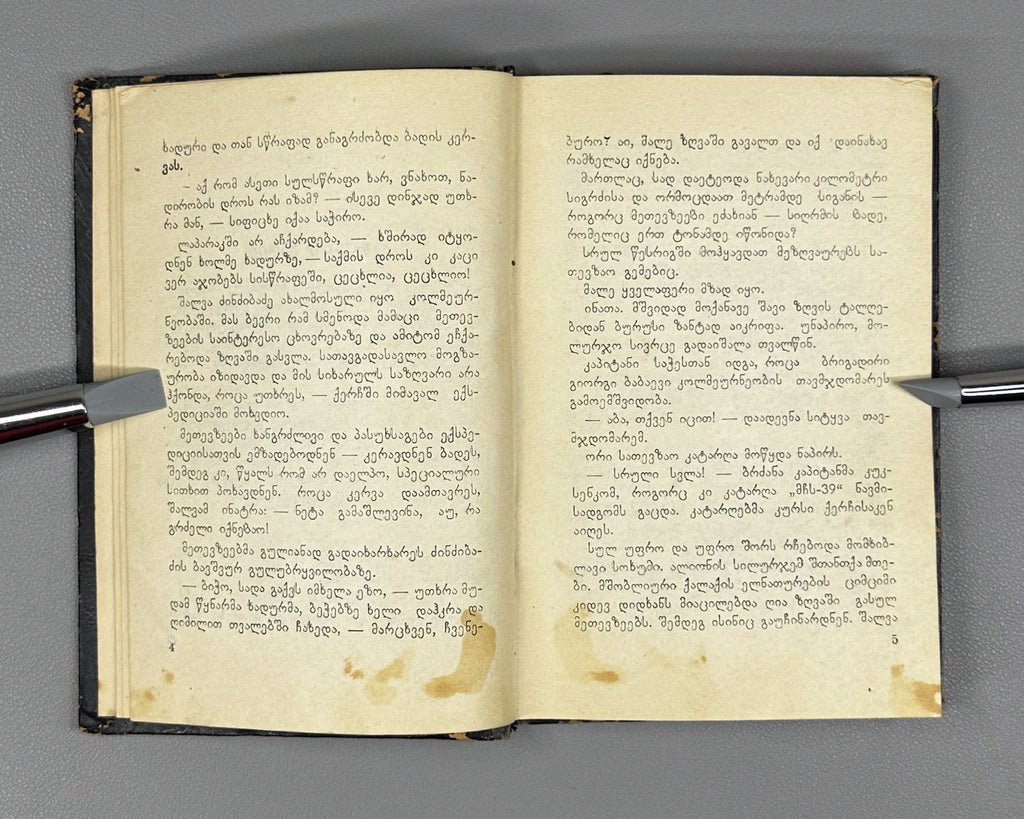 ხადური და თან სწრაფად განაგრძობდა ბადის კერ-
ვას.
— აქ რომ ასეთი სულსწრაფი ხარ, ვნახოთ, ნა-
დირობის დროს რას იზამ? — ისევე დინჯად უთხ-
რა მან, — სიფიცხე იქაა საჭირო.
ლაპარაკში არ აჩქარდება, — ხშირად იტყო-
დნენ ხოლმე ხადურზე, — საქმის დროს კი კაცი
ვერ აჯობებს სისწრაფეში, ცეცხლია, ცეცხლიო!
შალვა ძინძიბაძე ახალმოსული იყო კოლმეურ-
ნეობაში. მას ბევრი რამ სმენოდა მამაცი მეთევ-
ზეების საინტერესო ცხოვრებაზე და ამიტომ ეჩქა-
რებოდა ზღვაში გასვლა. სათავგადასავლო მოგზა-
ურობა იზიდავდა და მის სიხარულს საზღვარი არა
ჰქონდა, როცა უთხრეს, — ქერჩში მიმავალ ექს-
პედიციაში მოხვდიო.
მეთევზეები ხანგრძლივი და პასუხსაგები ექსპე-
დიციისათვის ემზადებოდნენ — კერავდნენ ბადეს,
შემდეგ კი, წყალს რომ არ დაელპო, სპეციალური
სითხით პოხავდნენ. როცა კერვა დაამთავრეს,
შალვამ ინატრა: — ნეტა გამაშლევინა, აუ, რა
გრძელი იქნებაო!
მეთევზეებმა გულიანად გადაიხარხარეს ძინძიბა-
ძის ბავშვურ გულუბრყვილობაზე.
— ბიჭო, სადა გაქვს იმხელა ეზო, — უთხრა მუ-
დამ წყნარმა ხადურმა, ბეჭებზე ხელი დაჰკრა და
ღიმილით თვალებში ჩახედა, — მარცხვენ, ჩვენე-
4
ბურო? აი, მალე ზღვაში გავალთ და იქ დაინახავ
რამხელაც იქნება.
მართლაც, სად დაეტეოდა ნახევარი კილომეტრი
სიგრძისა და ორმოცდაათ მეტრამდე სიგანის —
როგორც მეთევზეები ეძახიან — სიღრმის ბადე,
რომელიც ერთ ტონამდე იწონიდა?
სრულ წესრიგში მოჰყავდათ მეზღვაურებს სა-
თევზაო გემებიც.
მალე ყველაფერი მზად იყო.
ინათა. მშვიდად მოქანავე შავი ზღვის ტალღე-
ბიდან ბურუსი ზანტად აიკრიფა. უნაპირო, მო-
ლურჯო სივრცე გადაიშალა თვალწინ.
კაპიტანი საჭესთან იდგა, როცა ბრიგადირი
გიორგი ბაბაევი კოლმეურნეობის თავმჯდომარეს
გამოემშვიდობა.
— აბა, თქვენ იცით! — დაადევნა სიტყვა თავ-
მჯდომარემ.
ორი სათევზაო კატარღა მოწყდა ნაპირს.
— სრული სვლა! — ბრძანა კაპიტანმა კუკ-
სენკომ, როგორც კი კატარღა „მჩს-39“ ნავმი-
სადგომს გაცდა. კატარღებმა კურსი ქერჩისაკენ
აიღეს.
სულ უფრო და უფრო შორს რჩებოდა მომხიბ-
ლავი სოხუმი. ალიონის სილურჯემ შთანთქა მთე-
ბი. მშობლიური ქალაქის ელნათურების ციმციმი
კიდევ დიდხანს მიაცილებდა ღია ზღვაში გასულ
მეთევზეებს. შემდეგ ისინიც გაუჩინარდნენ. შალვა
5